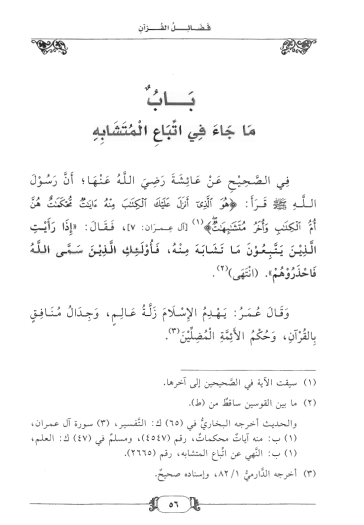 فضائل القرآن
بَابٌ
مَا جَاءَ فِي اتِّبَاعِ الْمُتَشَابِهِ
فِي الصَّحِيْحِ عَنْ عَائِشَةَ رَضِيَ اللَّهُ عَنْهَا؛ أَنَّ رَسُوْلَ
اللَّهِ ﷺ قَرَأَ: ﴿هُوَ الَّذِىٓ أَنزَلَ عَلَيْكَ الْكِتَٰبَ مِنْهُ ءَايَٰتٌ مُّحْكَمَٰتٌ هُنَّ
أُمُّ الْكِتَٰبِ وَأُخَرُ مُتَشَٰبِهَٰتٌ﴾(١) [آل عمران: ٧]، فَقَالَ: «إِذَا رَأَيْتِ
الَّذِيْنَ يَتَّبِعُوْنَ مَا تَشَابَهَ مِنْهُ، فَأُولَئِكِ الَّذِيْنَ سَمَّى اللَّهُ
فَاحْذَرُوْهُمْ». (انْتَهَى)(٢).
وَقَالَ عُمَرُ: يَهْدِمُ الإِسْلَامَ زَلَّةُ عَالِمٍ، وَجِدَالُ مُنَافِقٍ
بِالْقُرْآنِ، وَحُكْمُ الأَئِمَّةِ الْمُضِلِّيْنَ(٣).
(١) سيقت الآية في الصحيحين إلى آخرها.
(٢) ما بين القوسين ساقطٌ من (ط).
والحديث أخرجه البخاريُّ في (٦٥) ك: التَّفسير، (٣) سورة آل عمران،
(١) ب: منه آياتٌ محكماتٌ، رقم (٤٥٤٧)، ومسلم في (٤٧) ك: العلم،
(١) ب: النَّهي عن اتِّباع المتشابه، رقم (٢٦٦٥).
(٣) أخرجه الدَّارميُّ ٨٢/١، وإسناده صحيحٌ.
٥٦